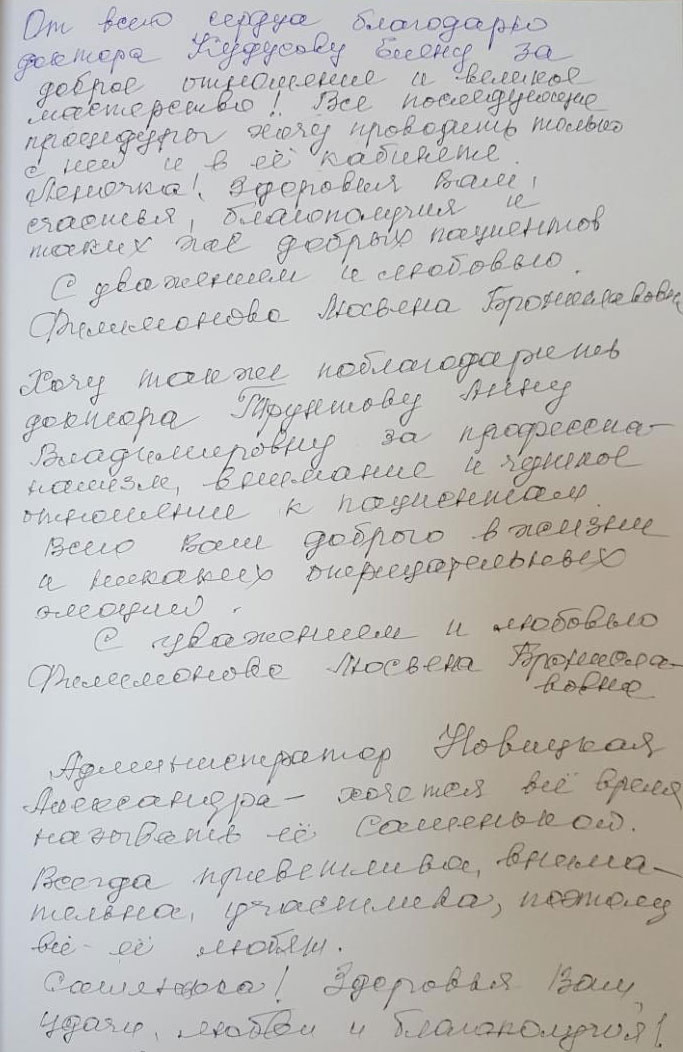 От всего сердца благодарю
доктора Кудусову Елену за
доброе отношение и великое
мастерство! Все последующие
процедуры хочу проводить только
с ней и в её кабинете.
Леночка! Здоровья Вам,
счастья, благополучия и
таких же добрых пациентов
С уважением и любовью.
Филимонова Люсьена Брониславовна
Хочу также поблагодарить
доктора Трунтову Анну
Владимировну за профессио-
нализм, внимание и чуткое
отношение к пациентам.
Всего Вам доброго в жизни
и никаких отрицательных
эмоций.
С уважением и любовью
Филимонова Люсьена Бронисла-
вовна
Администратор Новицкая
Александра – хочется всё время
называть её Сашенькой.
Всегда приветлива, внима-
тельна, участлива, поэтому
все её любят.
Сашенька! Здоровья Вам,
удачи, любви и благополучия!